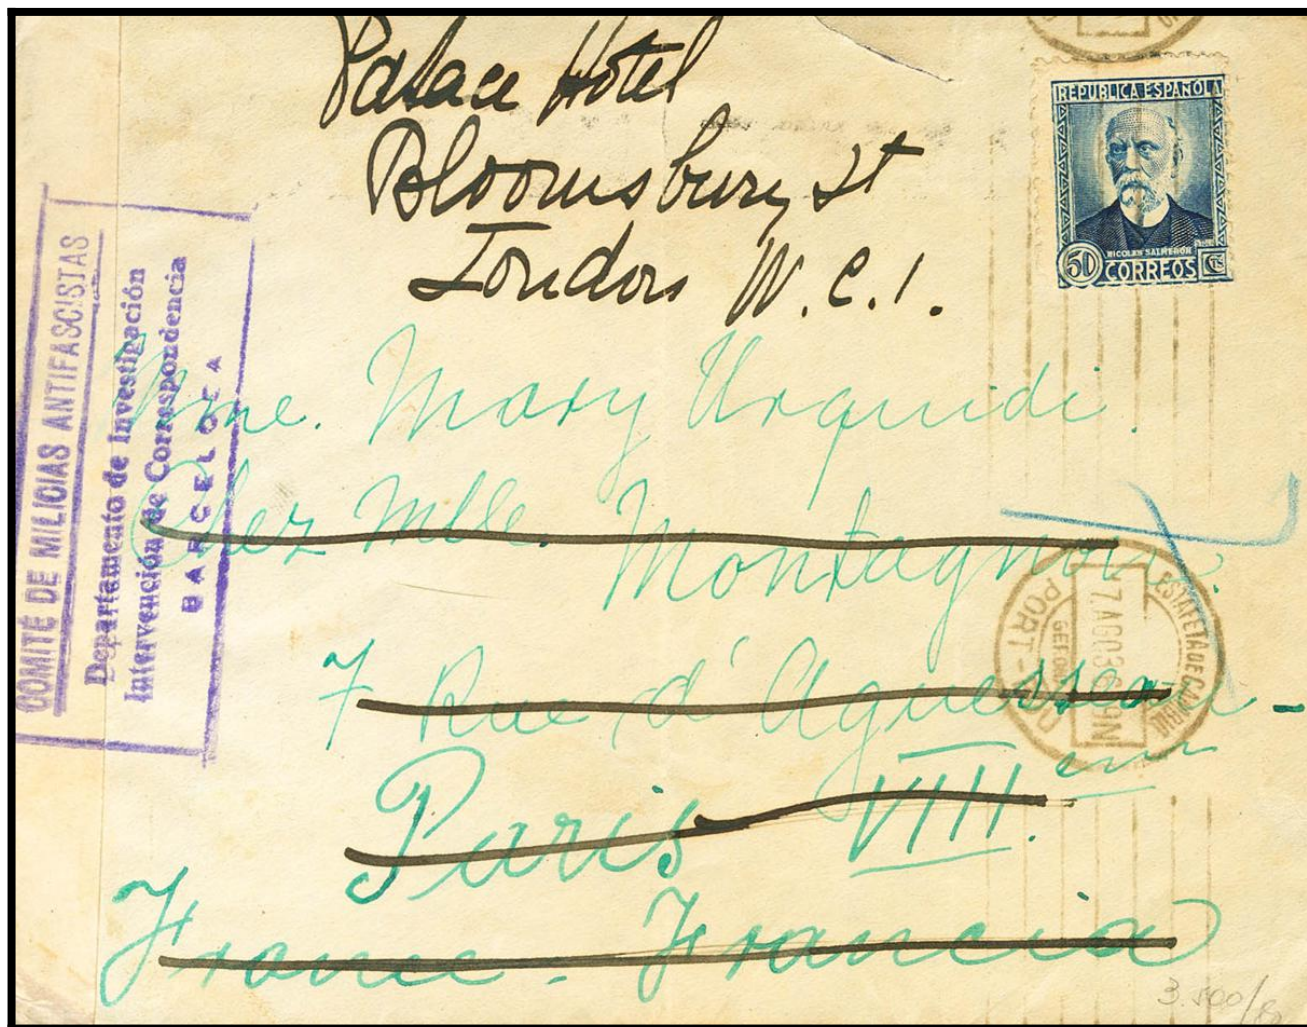 Palace Hotel
Bloomsbury St
London W.C.1.
REPUBLICA ESPAÑOLA
NICOLAS SALMERON
50 CORREOS CTS
COMITÉ DE MILICIAS ANTIFASCISTAS
Departamento de Investigación
Intervención de Correspondencia
BARCELONA
Mme. Mary Urquidi.
Chez Mlle.
7 Rue d'Aguesseau
Paris VIII.
France. Francia
ESTAFETA DE CAMBIO
7. AGO 36
PORT-BOU
3.500/